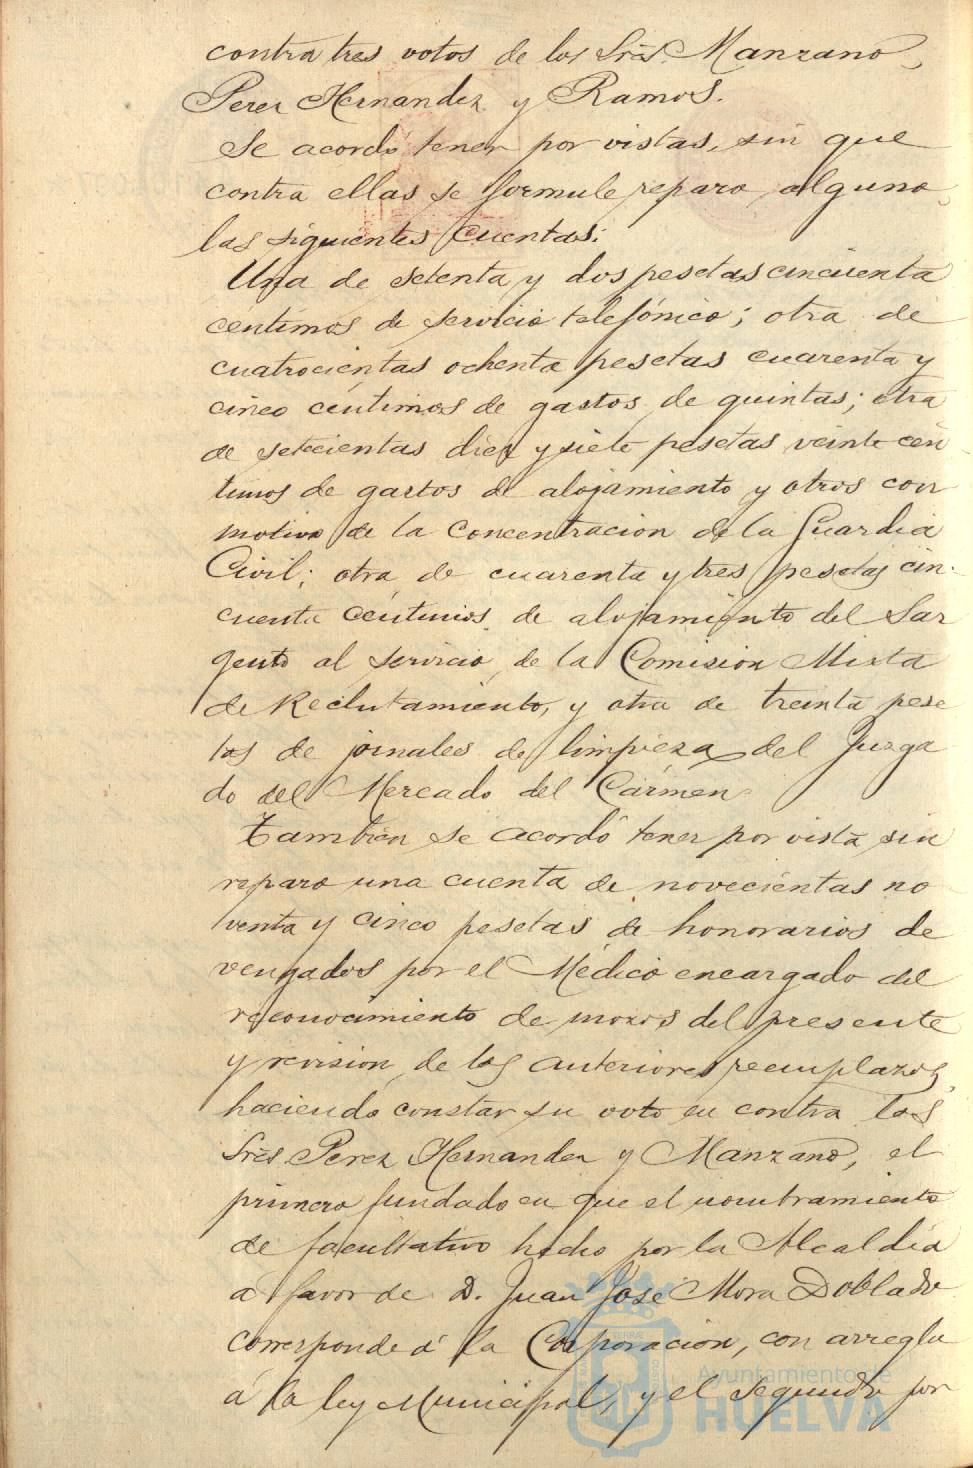 contra tres votos de los Srēs. Manzano,
Perez Hernandez y Ramos.
Se acordó tener por vistas, sin que
contra ellas se formule reparo alguno,
las siguientes cuentas:
Una de setenta y dos pesetas cincuenta
centimos de servicio telefónico; otra de
cuatrocientas ochenta pesetas cuarenta y
cinco céntimos de gastos de quintas; otra
de setecientas diez y siete pesetas veinte cén
timos de gastos de alojamiento y otros con
motivo de la concentracion de la Guardia
Civil; otra de cuarenta y tres pesetas cin-
cuenta céntimos de alojamiento del Sar
gento al servicio de la Comision Mixta
de Reclutamiento, y otra de treinta pese
tas de jornales de limpieza del Juzga
do del Mercado del Cármen.
Tambien se acordó tener por vista sin
reparo una cuenta de novecientas no
venta y cinco pesetas de honorarios de
vengados por el Médico encargado del
reconocimiento de mozos del presente
y revision de los anteriores reemplazos,
haciendo constar su voto en contra los
Srēs. Perez Hernandez y Manzano, el
primero fundado en que el nombramiento
de facultativo hecho por la Alcaldía
á favor de D. Juan José Mora Doblado
corresponde á la Corporacion, con arreglo
á la ley Municipal, y el segundo por
Ayuntamiento de
HUELVA